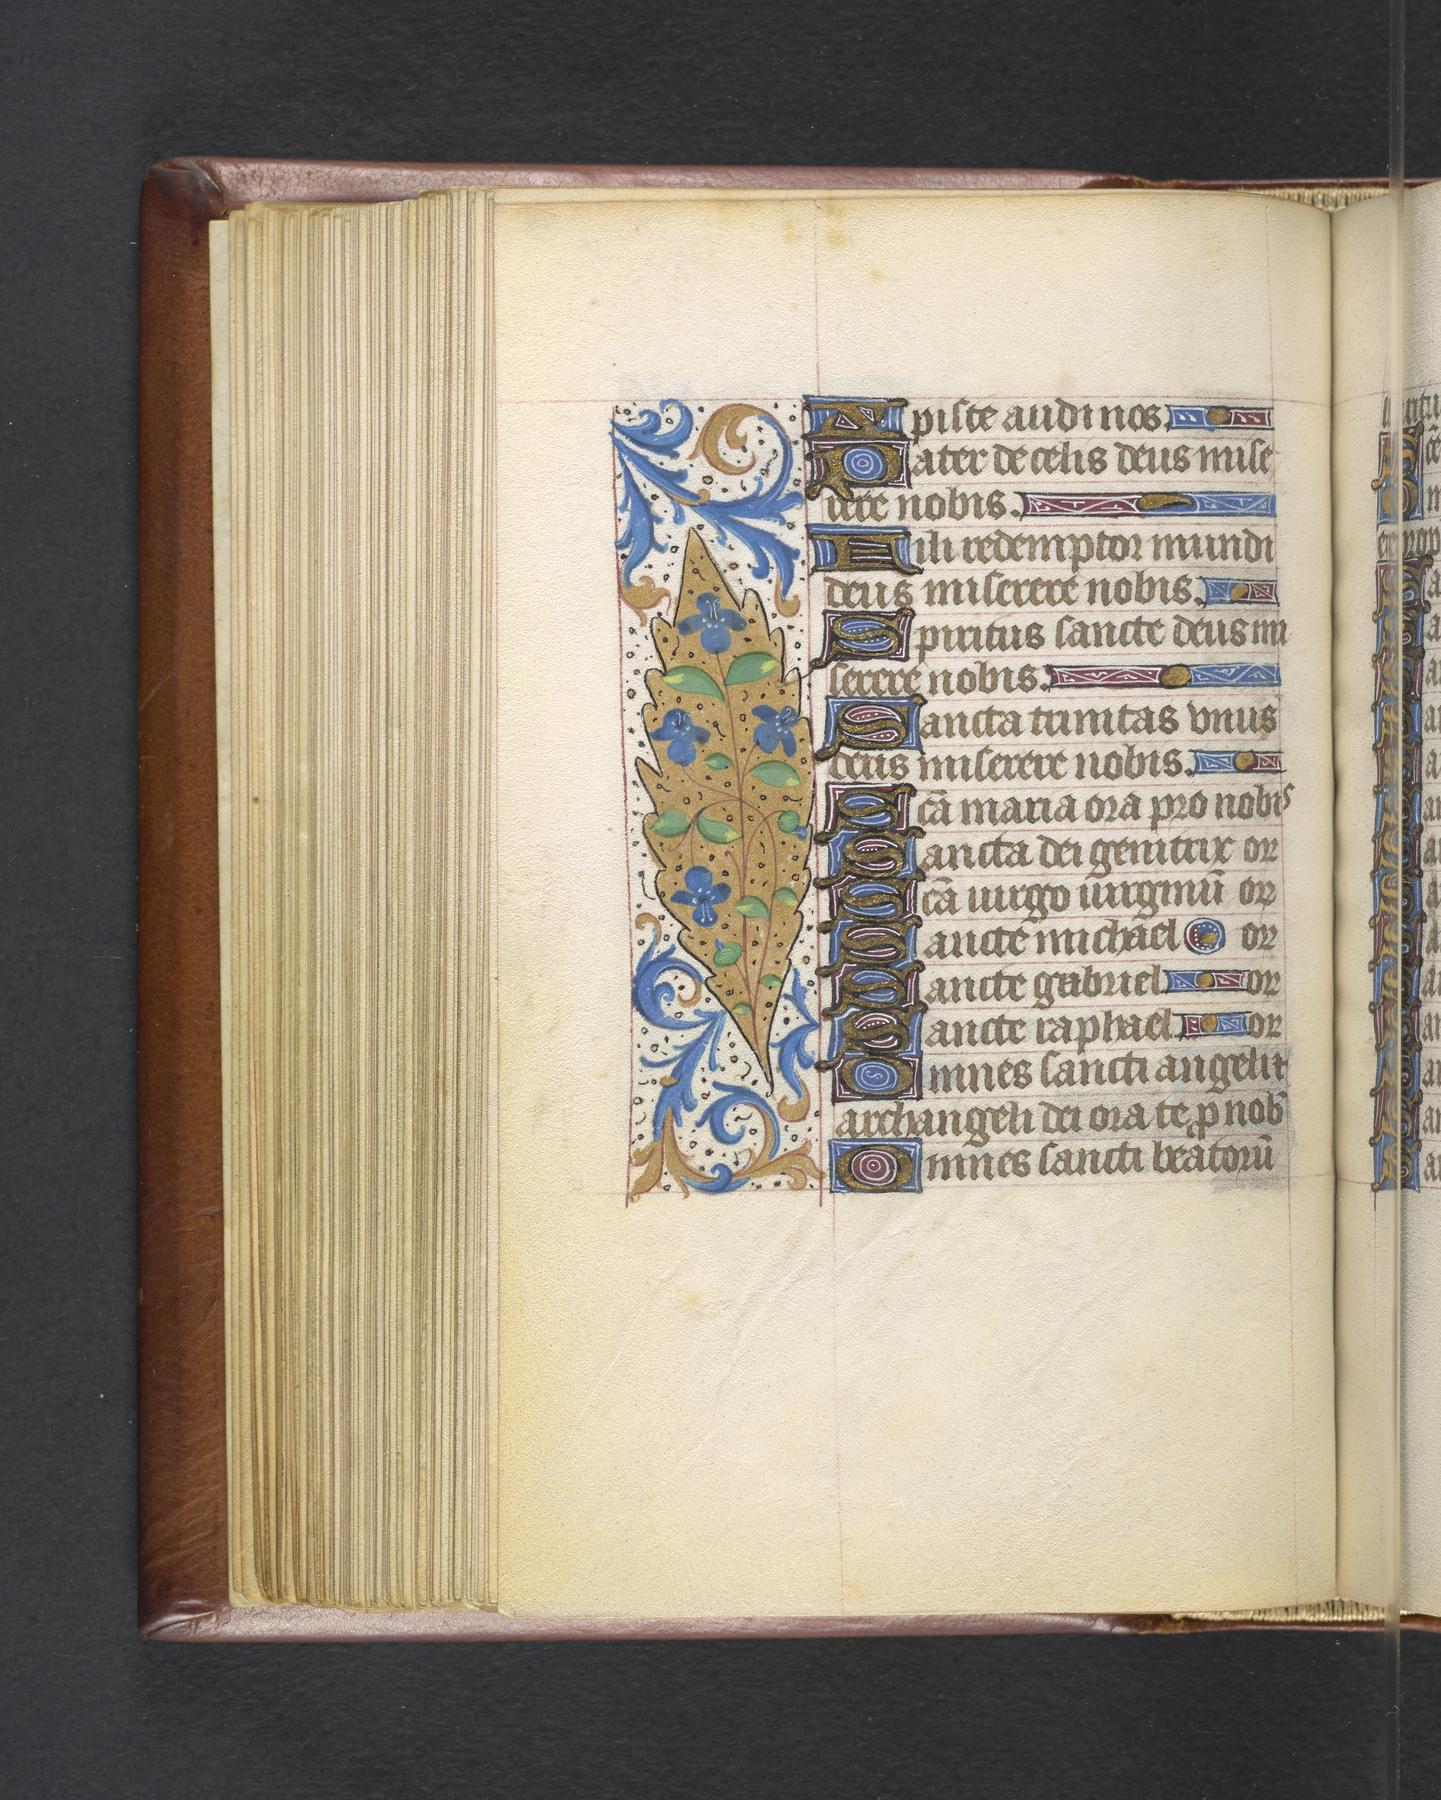 Xpiste audi nos.
Pater de celis deus mise
rere nobis.
Fili redemptor mundi
deus miserere nobis.
Spiritus sancte deus mi
serere nobis.
Sancta trinitas vnus
deus miserere nobis.
Scā maria ora pro nobis
Sancta dei genitrix or
Scā uirgo uirginū or
Sancte michael or
Sancte gabriel or
Sancte raphael or
Omnes sancti angeli ⁊
archangeli dei ora te ꝓ nob
Omnes sancti beatorū